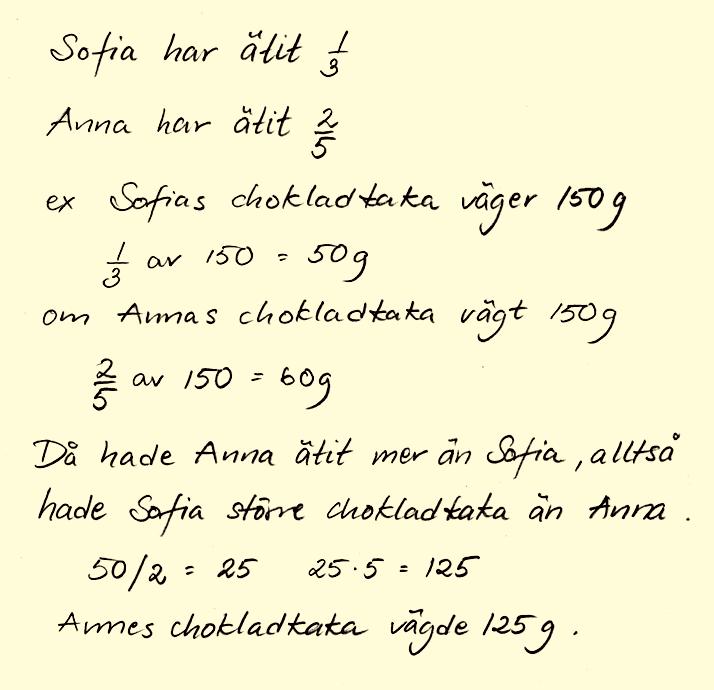 Sofia har ätit 1/3
Anna har ätit 2/5
ex Sofias chokladkaka väger 150 g
1/3 av 150 = 50 g
om Annas chokladkaka vägt 150 g
2/5 av 150 = 60 g
Då hade Anna ätit mer än Sofia, alltså
hade Sofia större chokladkaka än Anna.
50/2 = 25 25·5 = 125
Annes chokladkaka vägde 125 g.